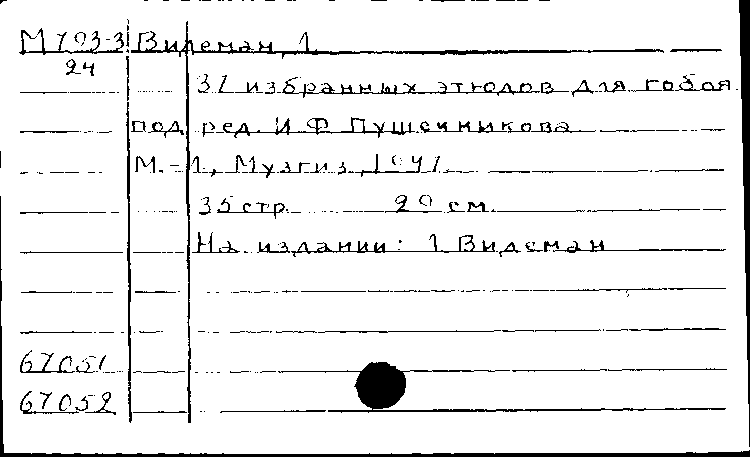 М 793-3 Видеман, Л.
24
37 избранных этюдов для гобоя
под ред. И Ф Пушечникова
М.-Л., Музгиз, 1947.
35 стр. 29 см.
На издании: Л Видеман
67051
67052